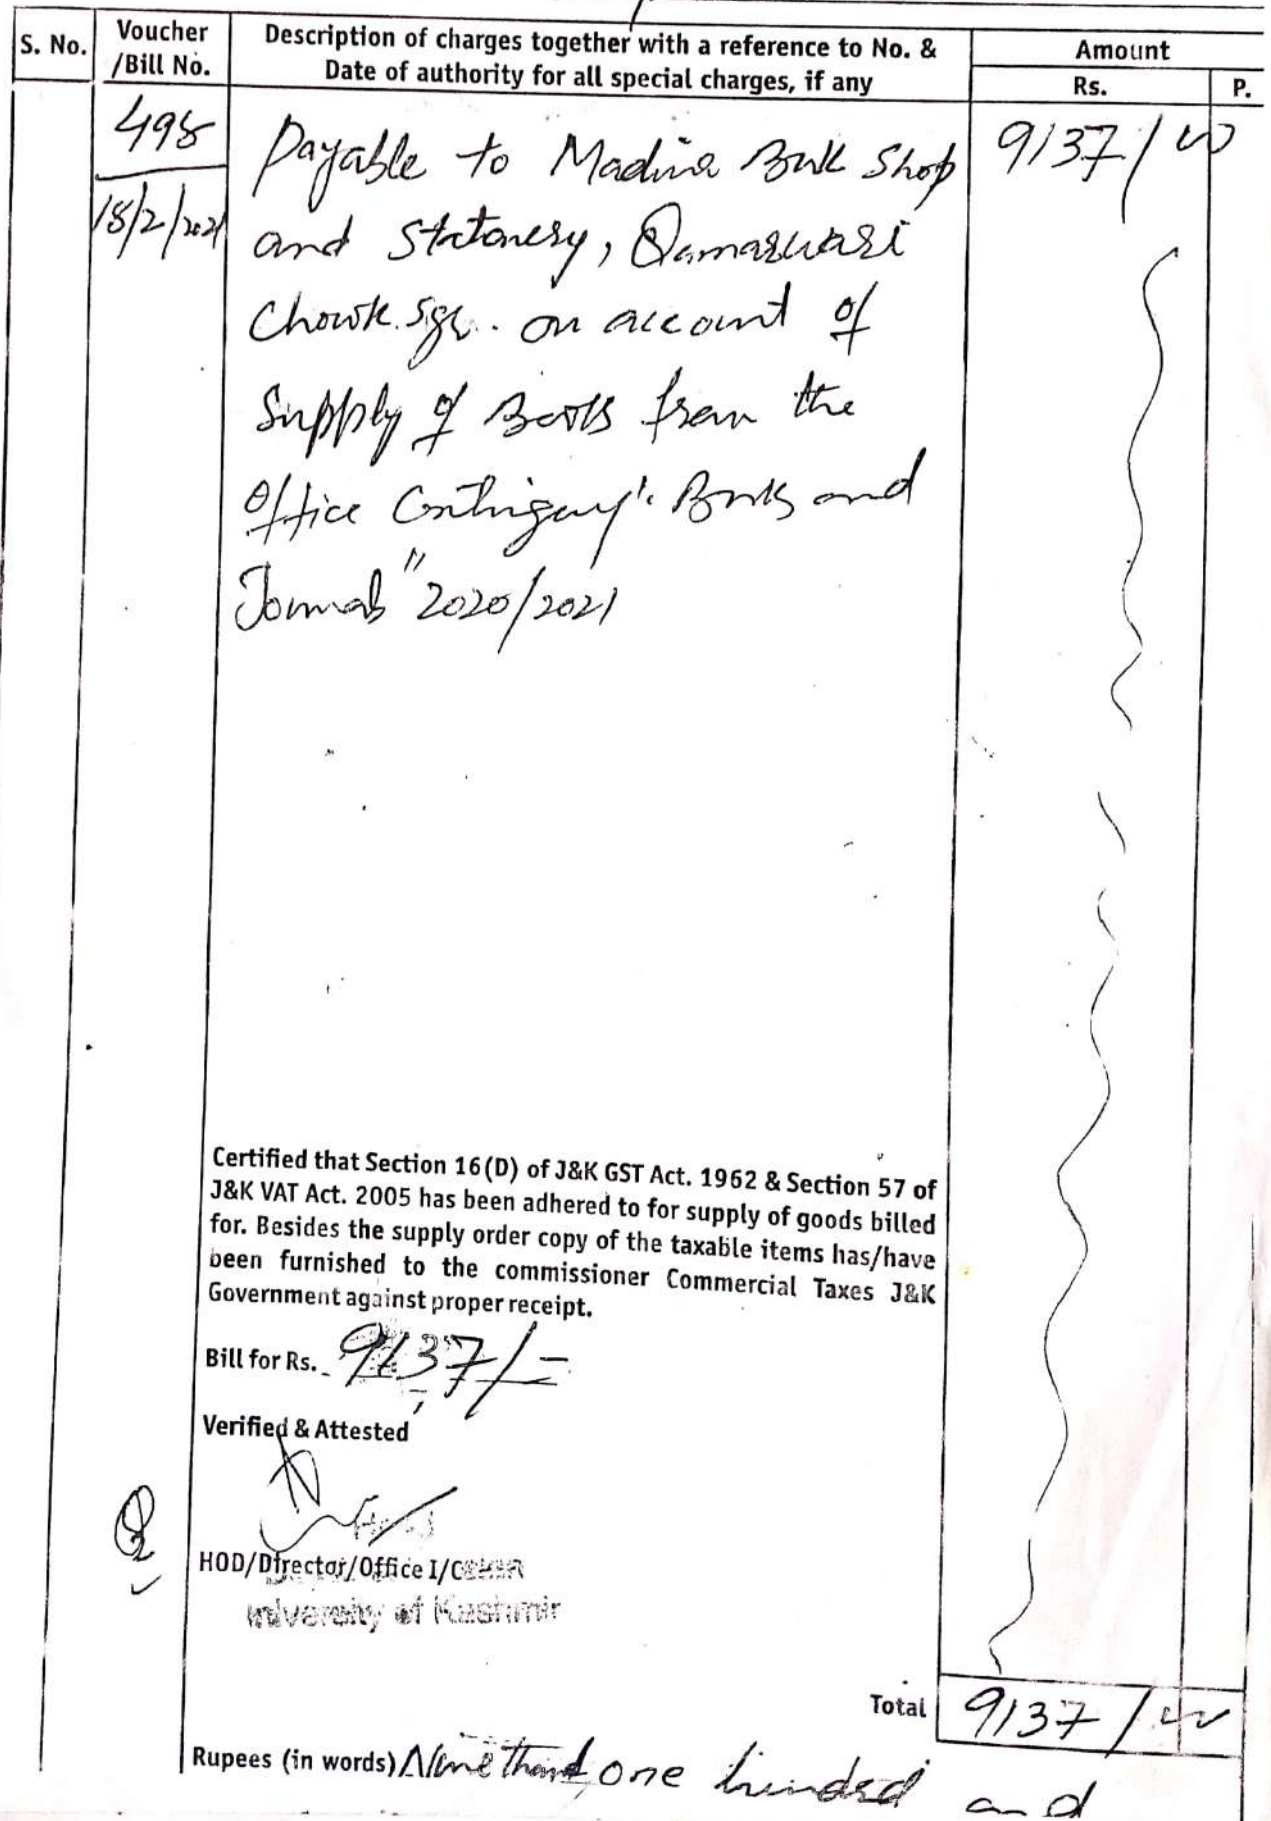 S. No.
Voucher
/Bill No.
Description of charges together with a reference to No. &
Date of authority for all special charges, if any
Amount
Rs.
P.
498
18/2/2021
Payable to Madina Book Shop
and Stationery, Qamarwari
Chowk Sgr. on account of
Supply of Books from the
Office Contingency "Books and
Journals" 2020/2021
9137/00
Certified that Section 16(D) of J&K GST Act. 1962 & Section 57 of
J&K VAT Act. 2005 has been adhered to for supply of goods billed
for. Besides the supply order copy of the taxable items has/have
been furnished to the commissioner Commercial Taxes J&K
Government against proper receipt.
Bill for Rs. 9137/=
Verified & Attested
Head
HOD/Director/Office I/C
University of Kashmir
Total 9137/00
Rupees (in words) Nine thousand one hundred and